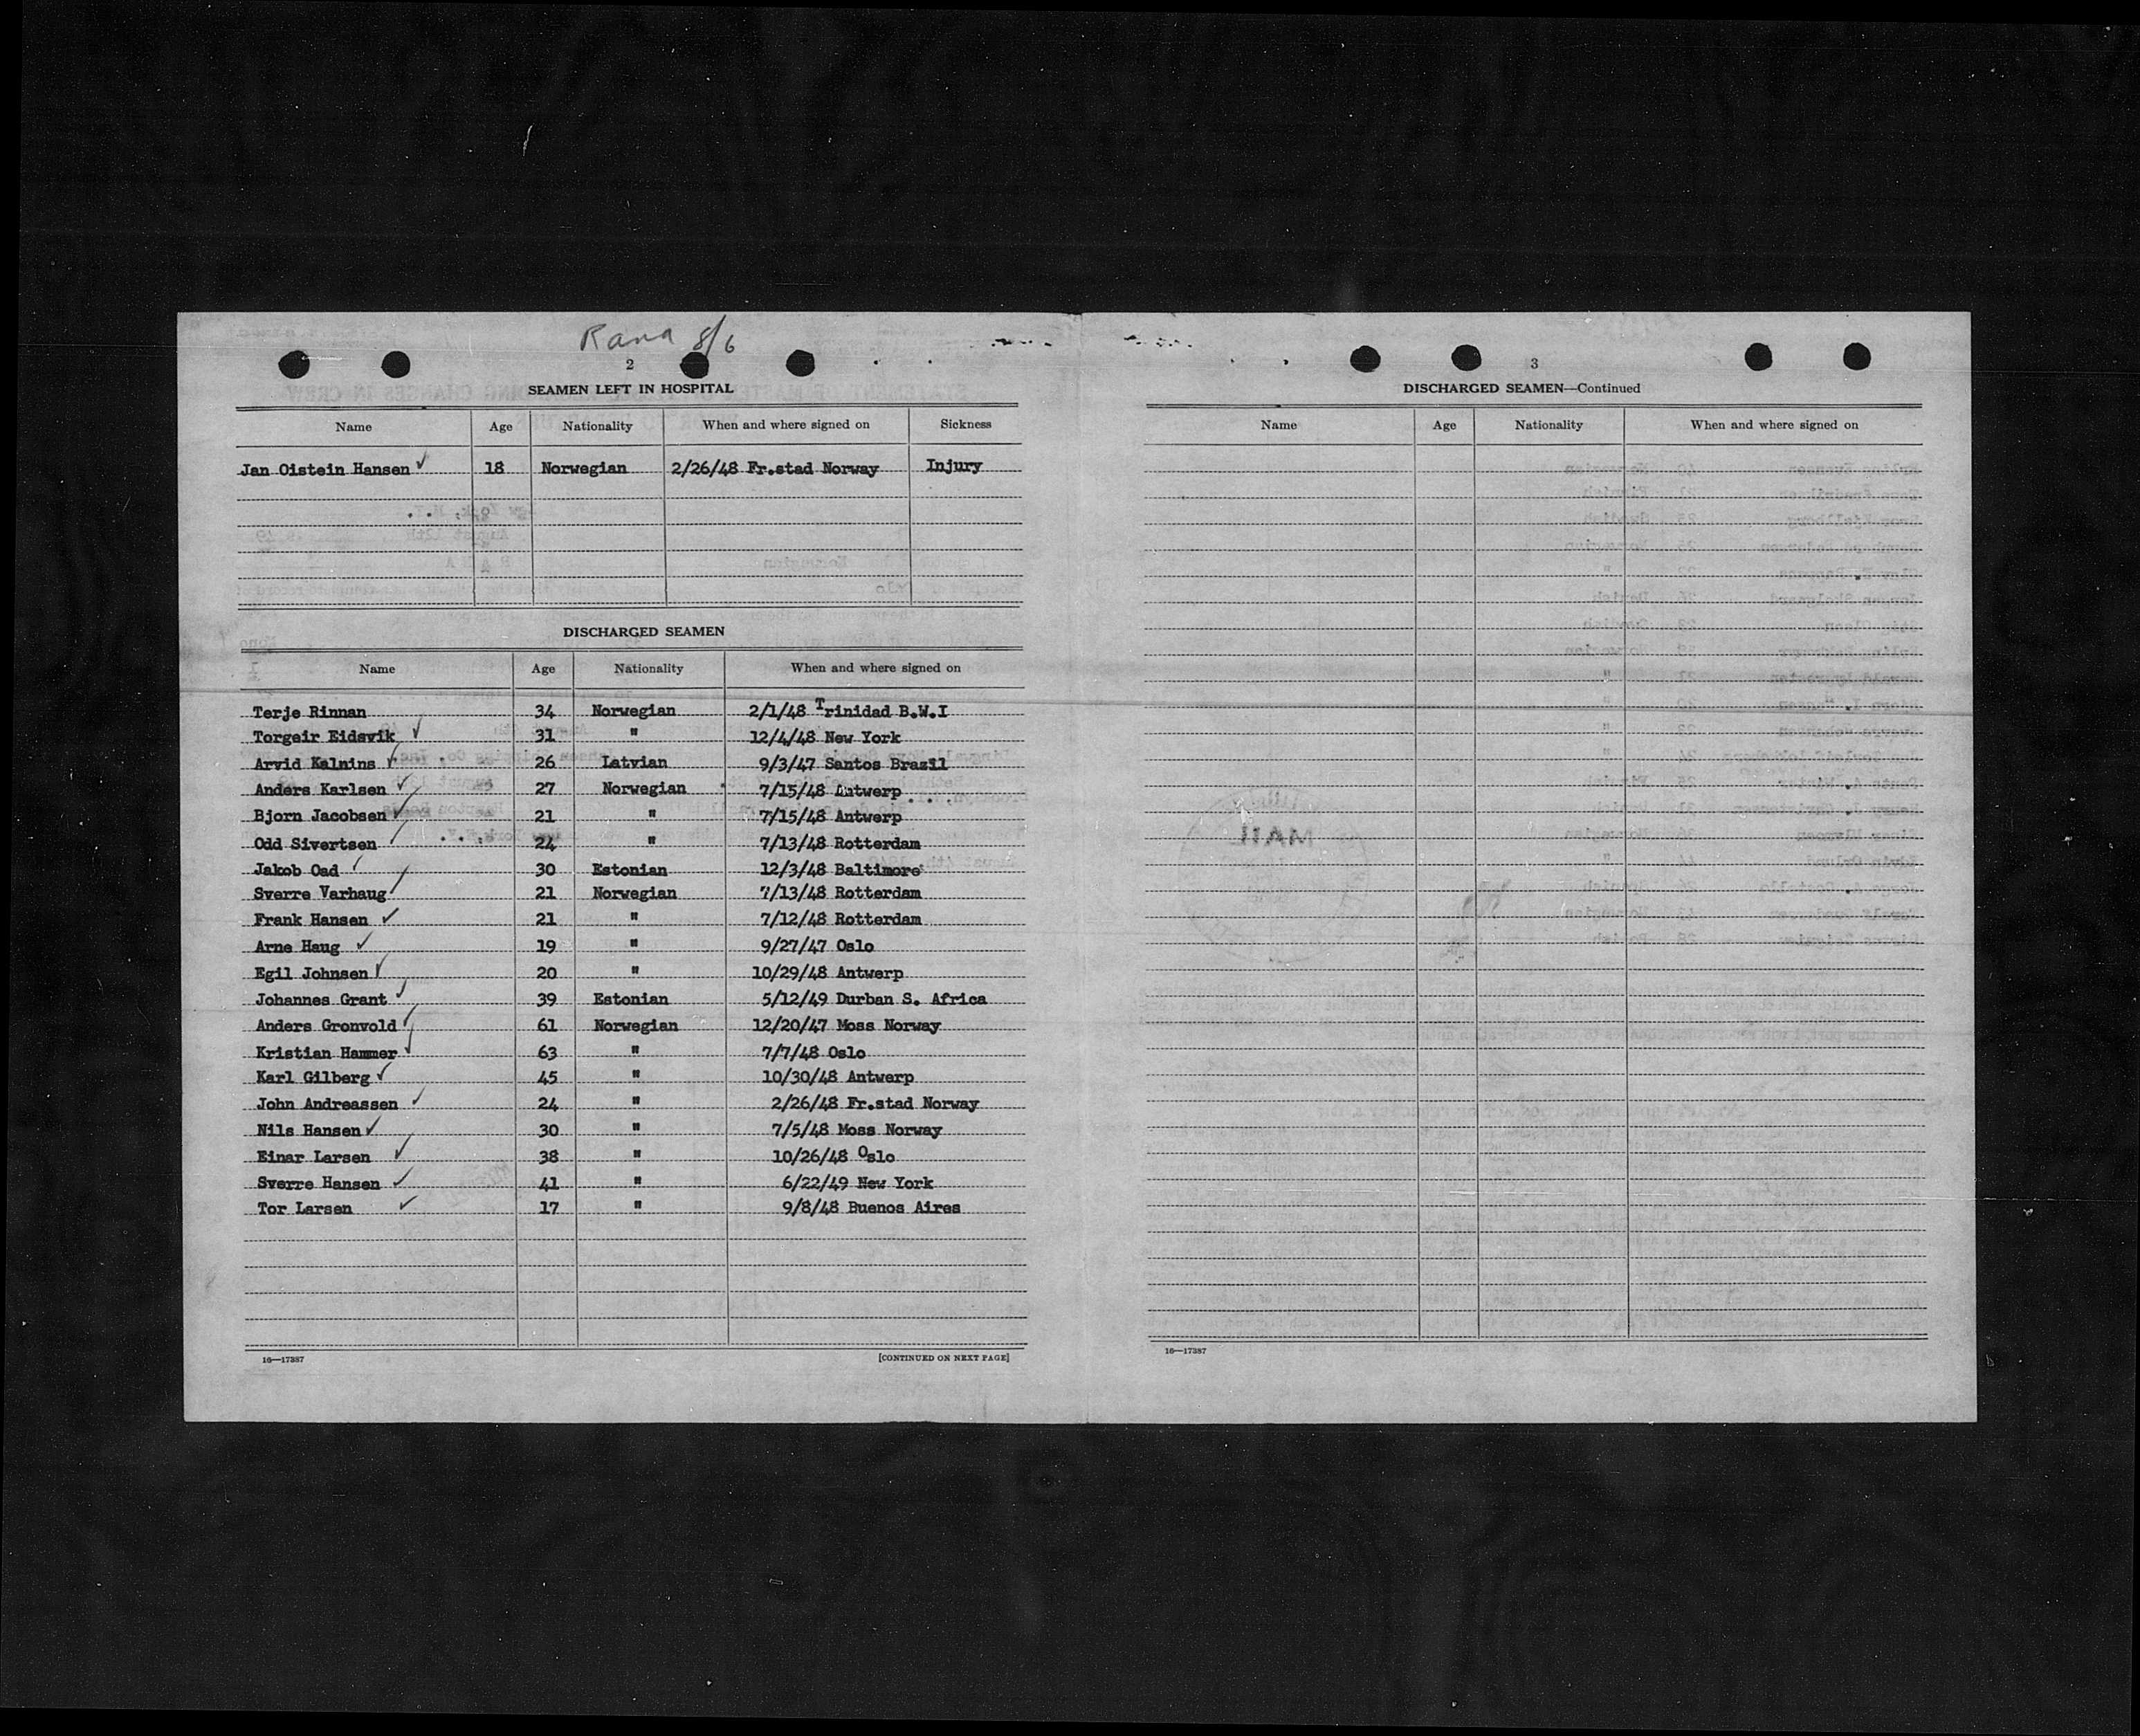 Rana 8/6
2
SEAMEN LEFT IN HOSPITAL
Name Age Nationality When and where signed on Sickness
Jan Oistein Hansen ✓ 18 Norwegian 2/26/48 Fr.stad Norway Injury
DISCHARGED SEAMEN
Name Age Nationality When and where signed on
Terje Rinnan 34 Norwegian 2/1/48 Trinidad B.W.I
Torgeir Eidsvik ✓ 31 " 12/4/48 New York
Arvid Kalnins ✓ 26 Latvian 9/3/47 Santos Brazil
Anders Karlsen ✓ 27 Norwegian 7/15/48 Antwerp
Bjorn Jacobsen ✓ 21 " 7/15/48 Antwerp
Odd Sivertsen ✓ 24 " 7/13/48 Rotterdam
Jakob Oad ✓ 30 Estonian 12/3/48 Baltimore
Sverre Varhaug ✓ 21 Norwegian 7/13/48 Rotterdam
Frank Hansen ✓ 21 " 7/12/48 Rotterdam
Arne Haug ✓ 19 " 9/27/47 Oslo
Egil Johnsen ✓ 20 " 10/29/48 Antwerp
Johannes Grant ✓ 39 Estonian 5/12/49 Durban S. Africa
Anders Gronvold ✓ 61 Norwegian 12/20/47 Moss Norway
Kristian Hammer ✓ 63 " 7/7/48 Oslo
Karl Gilberg ✓ 45 " 10/30/48 Antwerp
John Andreassen ✓ 24 " 2/26/48 Fr.stad Norway
Nils Hansen ✓ 30 " 7/5/48 Moss Norway
Einar Larsen ✓ 38 " 10/26/48 Oslo
Sverre Hansen ✓ 41 " 6/22/49 New York
Tor Larsen ✓ 17 " 9/8/48 Buenos Aires
16—17387 [CONTINUED ON NEXT PAGE]
3
DISCHARGED SEAMEN—Continued
Name Age Nationality When and where signed on
16—17387